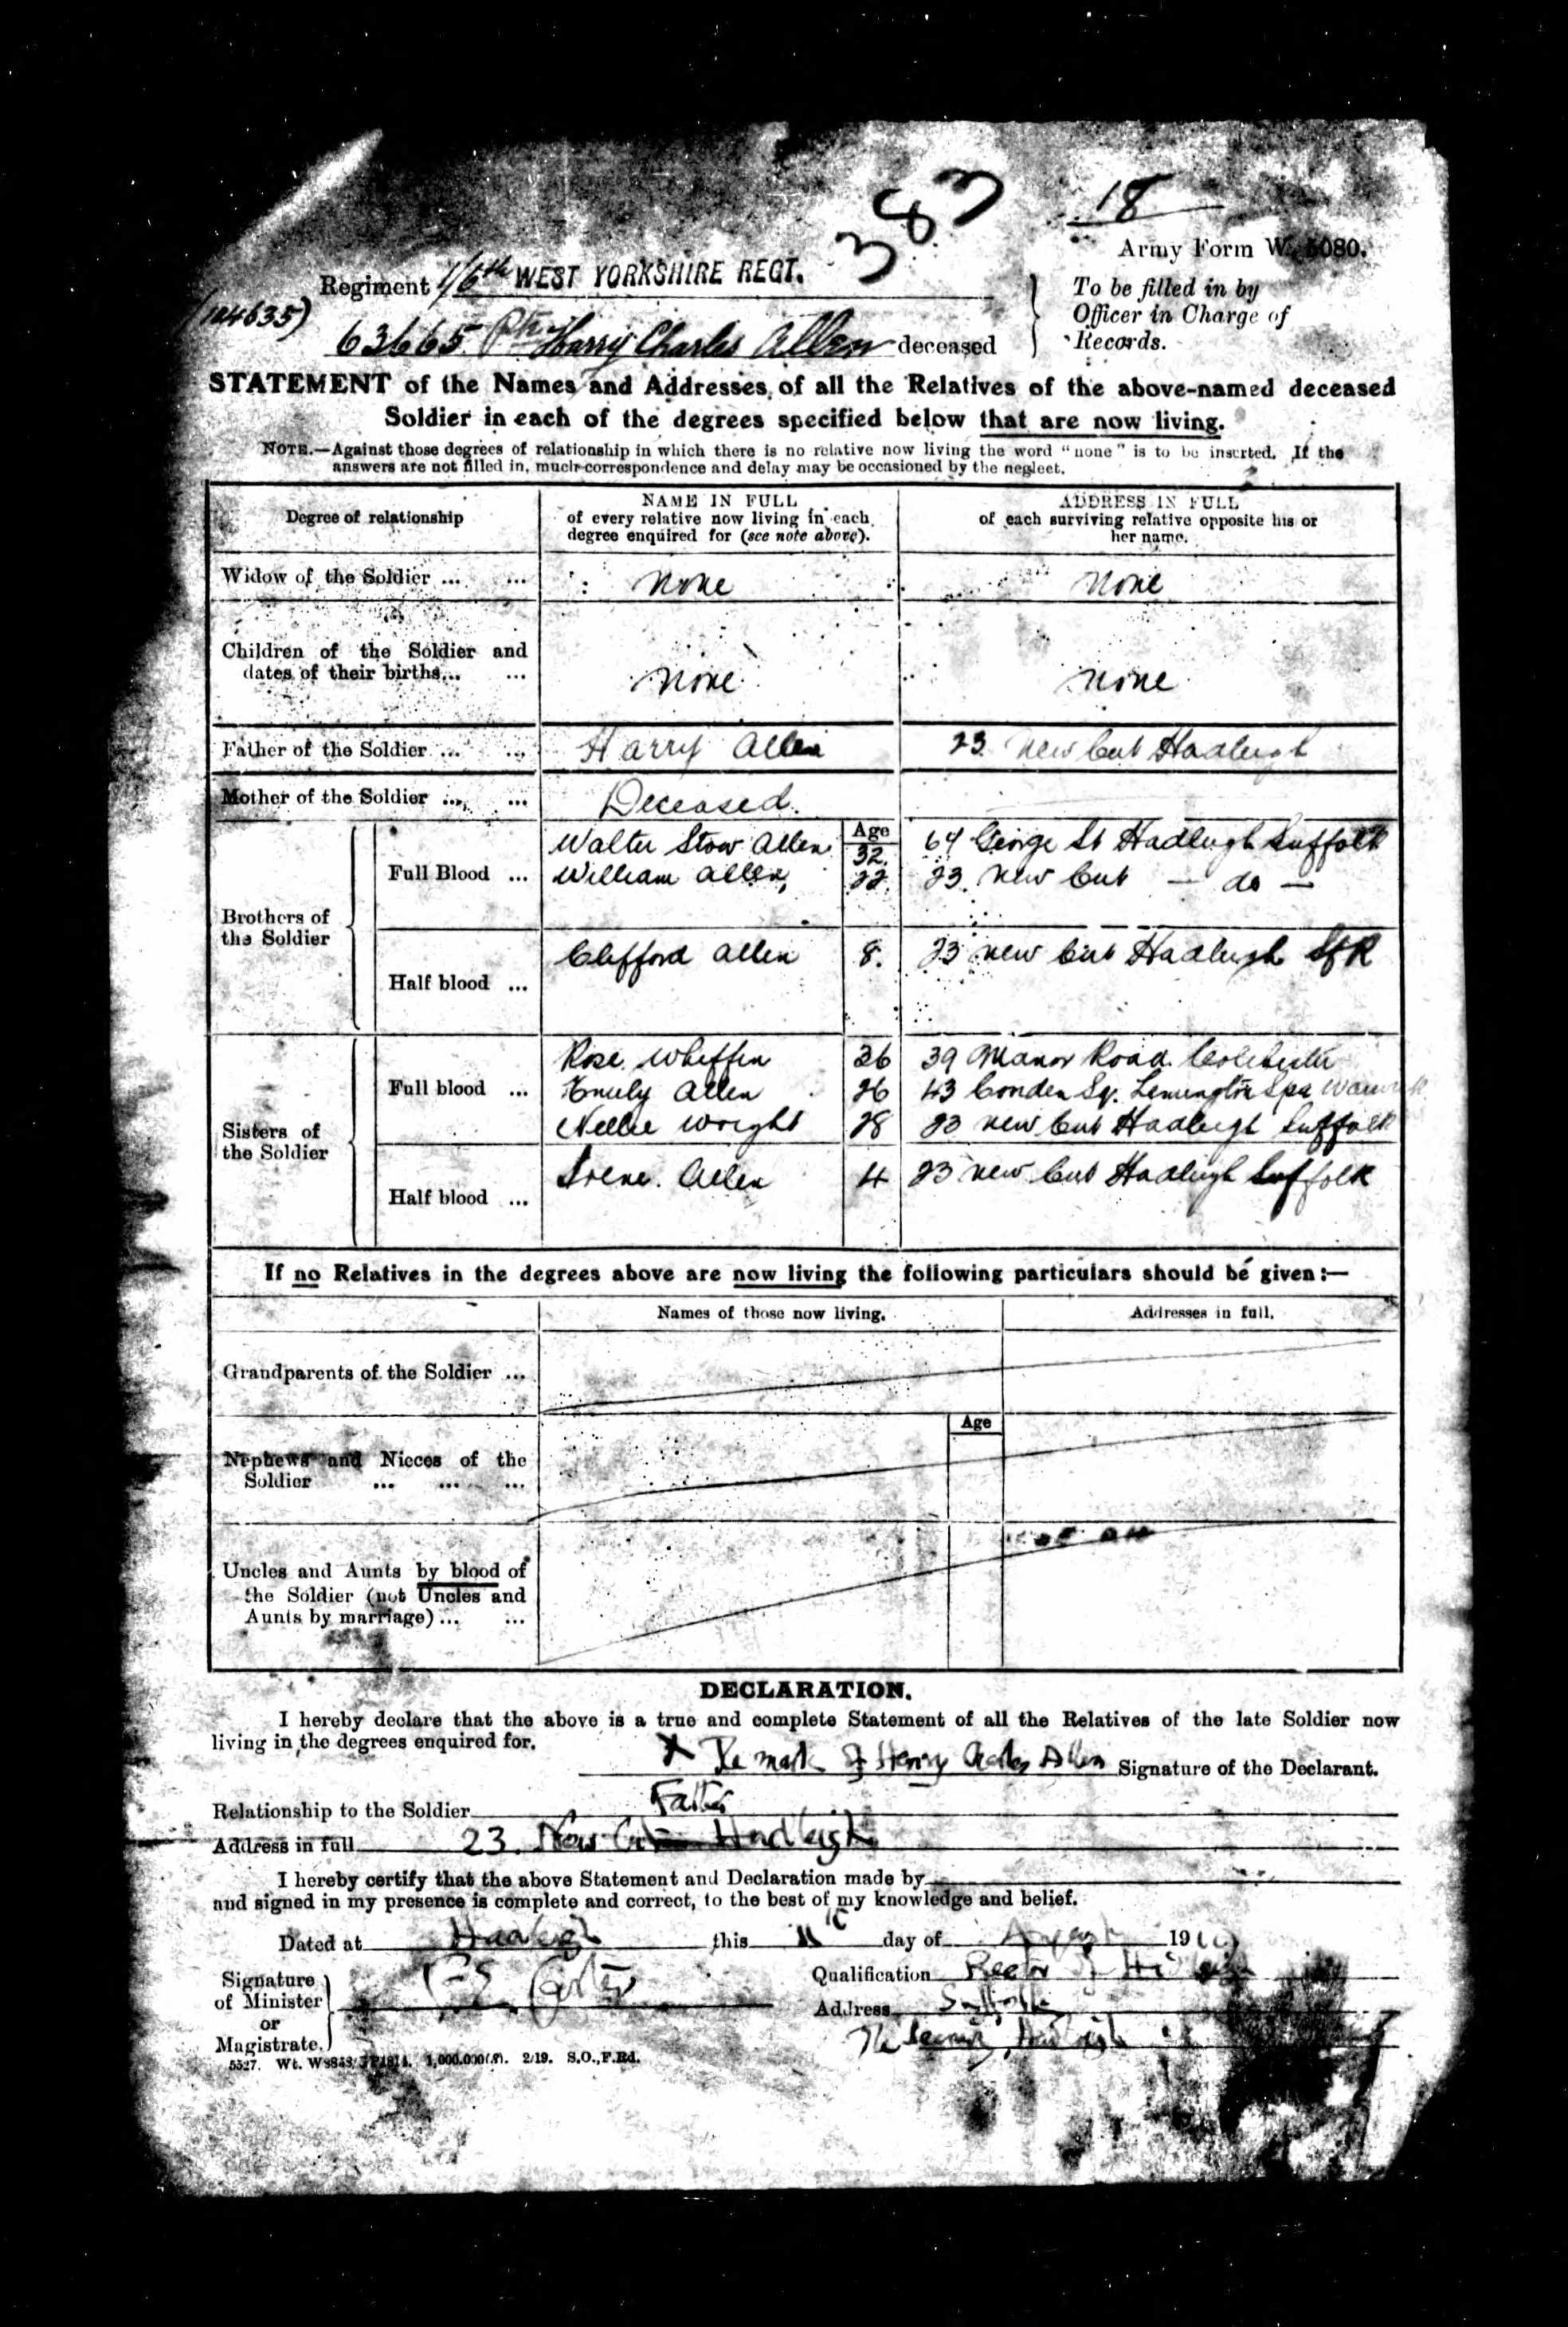 383
18
Army Form W. 5080.
Regiment 1/6th WEST YORKSHIRE REGT.
To be filled in by
Officer in Charge of
Records.
63665 Pte Harry Charles Allen deceased
STATEMENT of the Names and Addresses of all the Relatives of the above-named deceased
Soldier in each of the degrees specified below that are now living.
NOTE.—Against those degrees of relationship in which there is no relative now living the word "none" is to be inserted. If the
answers are not filled in, much correspondence and delay may be occasioned by the neglect.
Degree of relationship
NAME IN FULL
of every relative now living in each
degree enquired for (see note above).
ADDRESS IN FULL
of each surviving relative opposite his or
her name.
Widow of the Soldier ... ... None None
Children of the Soldier and
dates of their births... ... None None
Father of the Soldier ... ... Harry Allen 23 New Cut Hadleigh
Mother of the Soldier ... ... Deceased.
Age
Brothers of
the Soldier
Full Blood ...
Walter Stow Allen 32. 64 George St Hadleigh Suffolk
William Allen, 22. 23. New Cut — do —
Half blood ...
Clifford Allen 8. 23 New Cut Hadleigh Sfk
Sisters of
the Soldier
Full blood ...
Rose Wheffen 36 39 Manor Road. Colchester
Emily Allen 26 43 Conden Sq. Lemington Spa
Nellie Wright 28 23 New Cut Hadleigh Suffolk
Half blood ...
Irene. Allen 4 23 New Cut Hadleigh Suffolk
If no Relatives in the degrees above are now living the following particulars should be given:—
Names of those now living. Addresses in full.
Grandparents of the Soldier ...
Age
Nephews and Nieces of the
Soldier ... ... ...
Uncles and Aunts by blood of
the Soldier (not Uncles and
Aunts by marriage) ... ...
DECLARATION.
I hereby declare that the above is a true and complete Statement of all the Relatives of the late Soldier now
living in the degrees enquired for.
X The mark of Harry Charles Allen Signature of the Declarant.
Relationship to the Soldier Father
Address in full 23. New Cut Hadleigh
I hereby certify that the above Statement and Declaration made by
and signed in my presence is complete and correct, to the best of my knowledge and belief.
Dated at Hadleigh this 11th day of August 1919
Signature
of Minister
or
Magistrate.
Carter
Qualification Rector of Hadleigh
Address Suffolk
The Deanery, Hadleigh
5527. 1,000,000 2/19. S.O.,F.Rd.